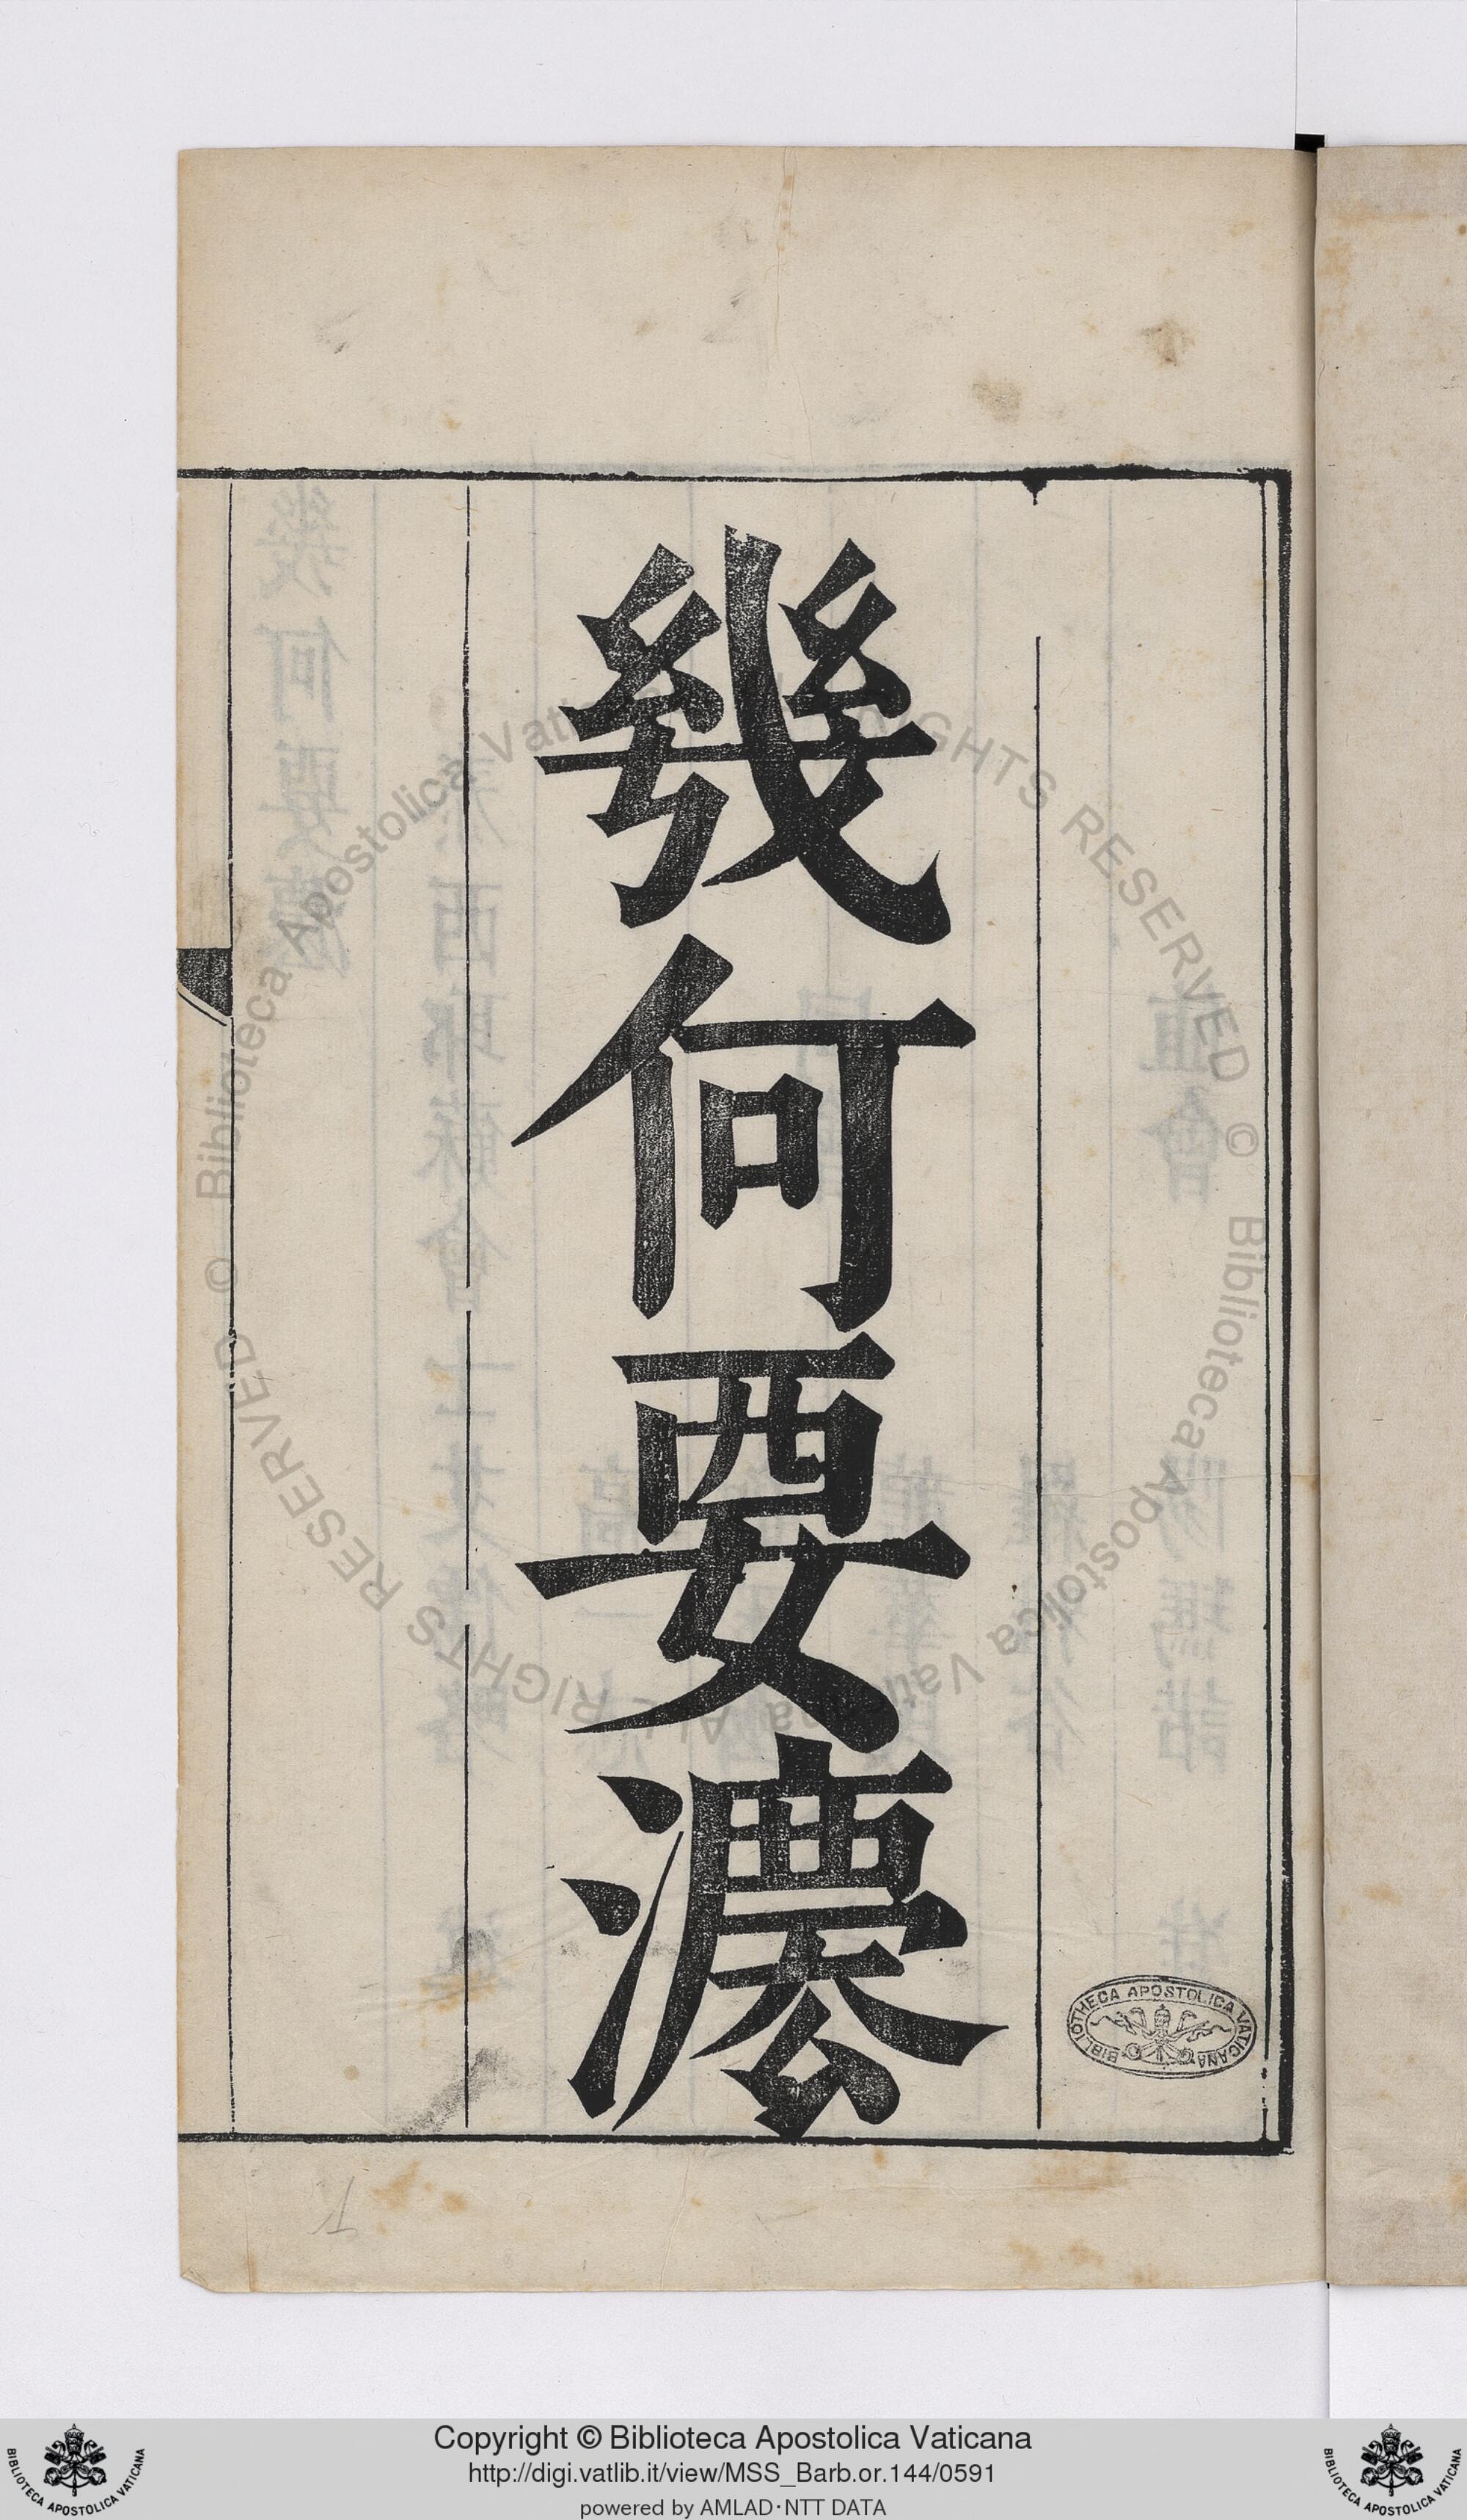 幾何要灋
BIBLIOTHECA APOSTOLICA VATICANA
© Biblioteca Apostolica Vaticana ALL RIGHTS RESERVED
© Biblioteca Apostolica Vaticana ALL RIGHTS RESERVED
Copyright © Biblioteca Apostolica Vaticana
http://digi.vatlib.it/view/MSS_Barb.or.144/0591
powered by AMLAD·NTT DATA
BIBLIOTECA APOSTOLICA VATICANA
BIBLIOTECA APOSTOLICA VATICANA